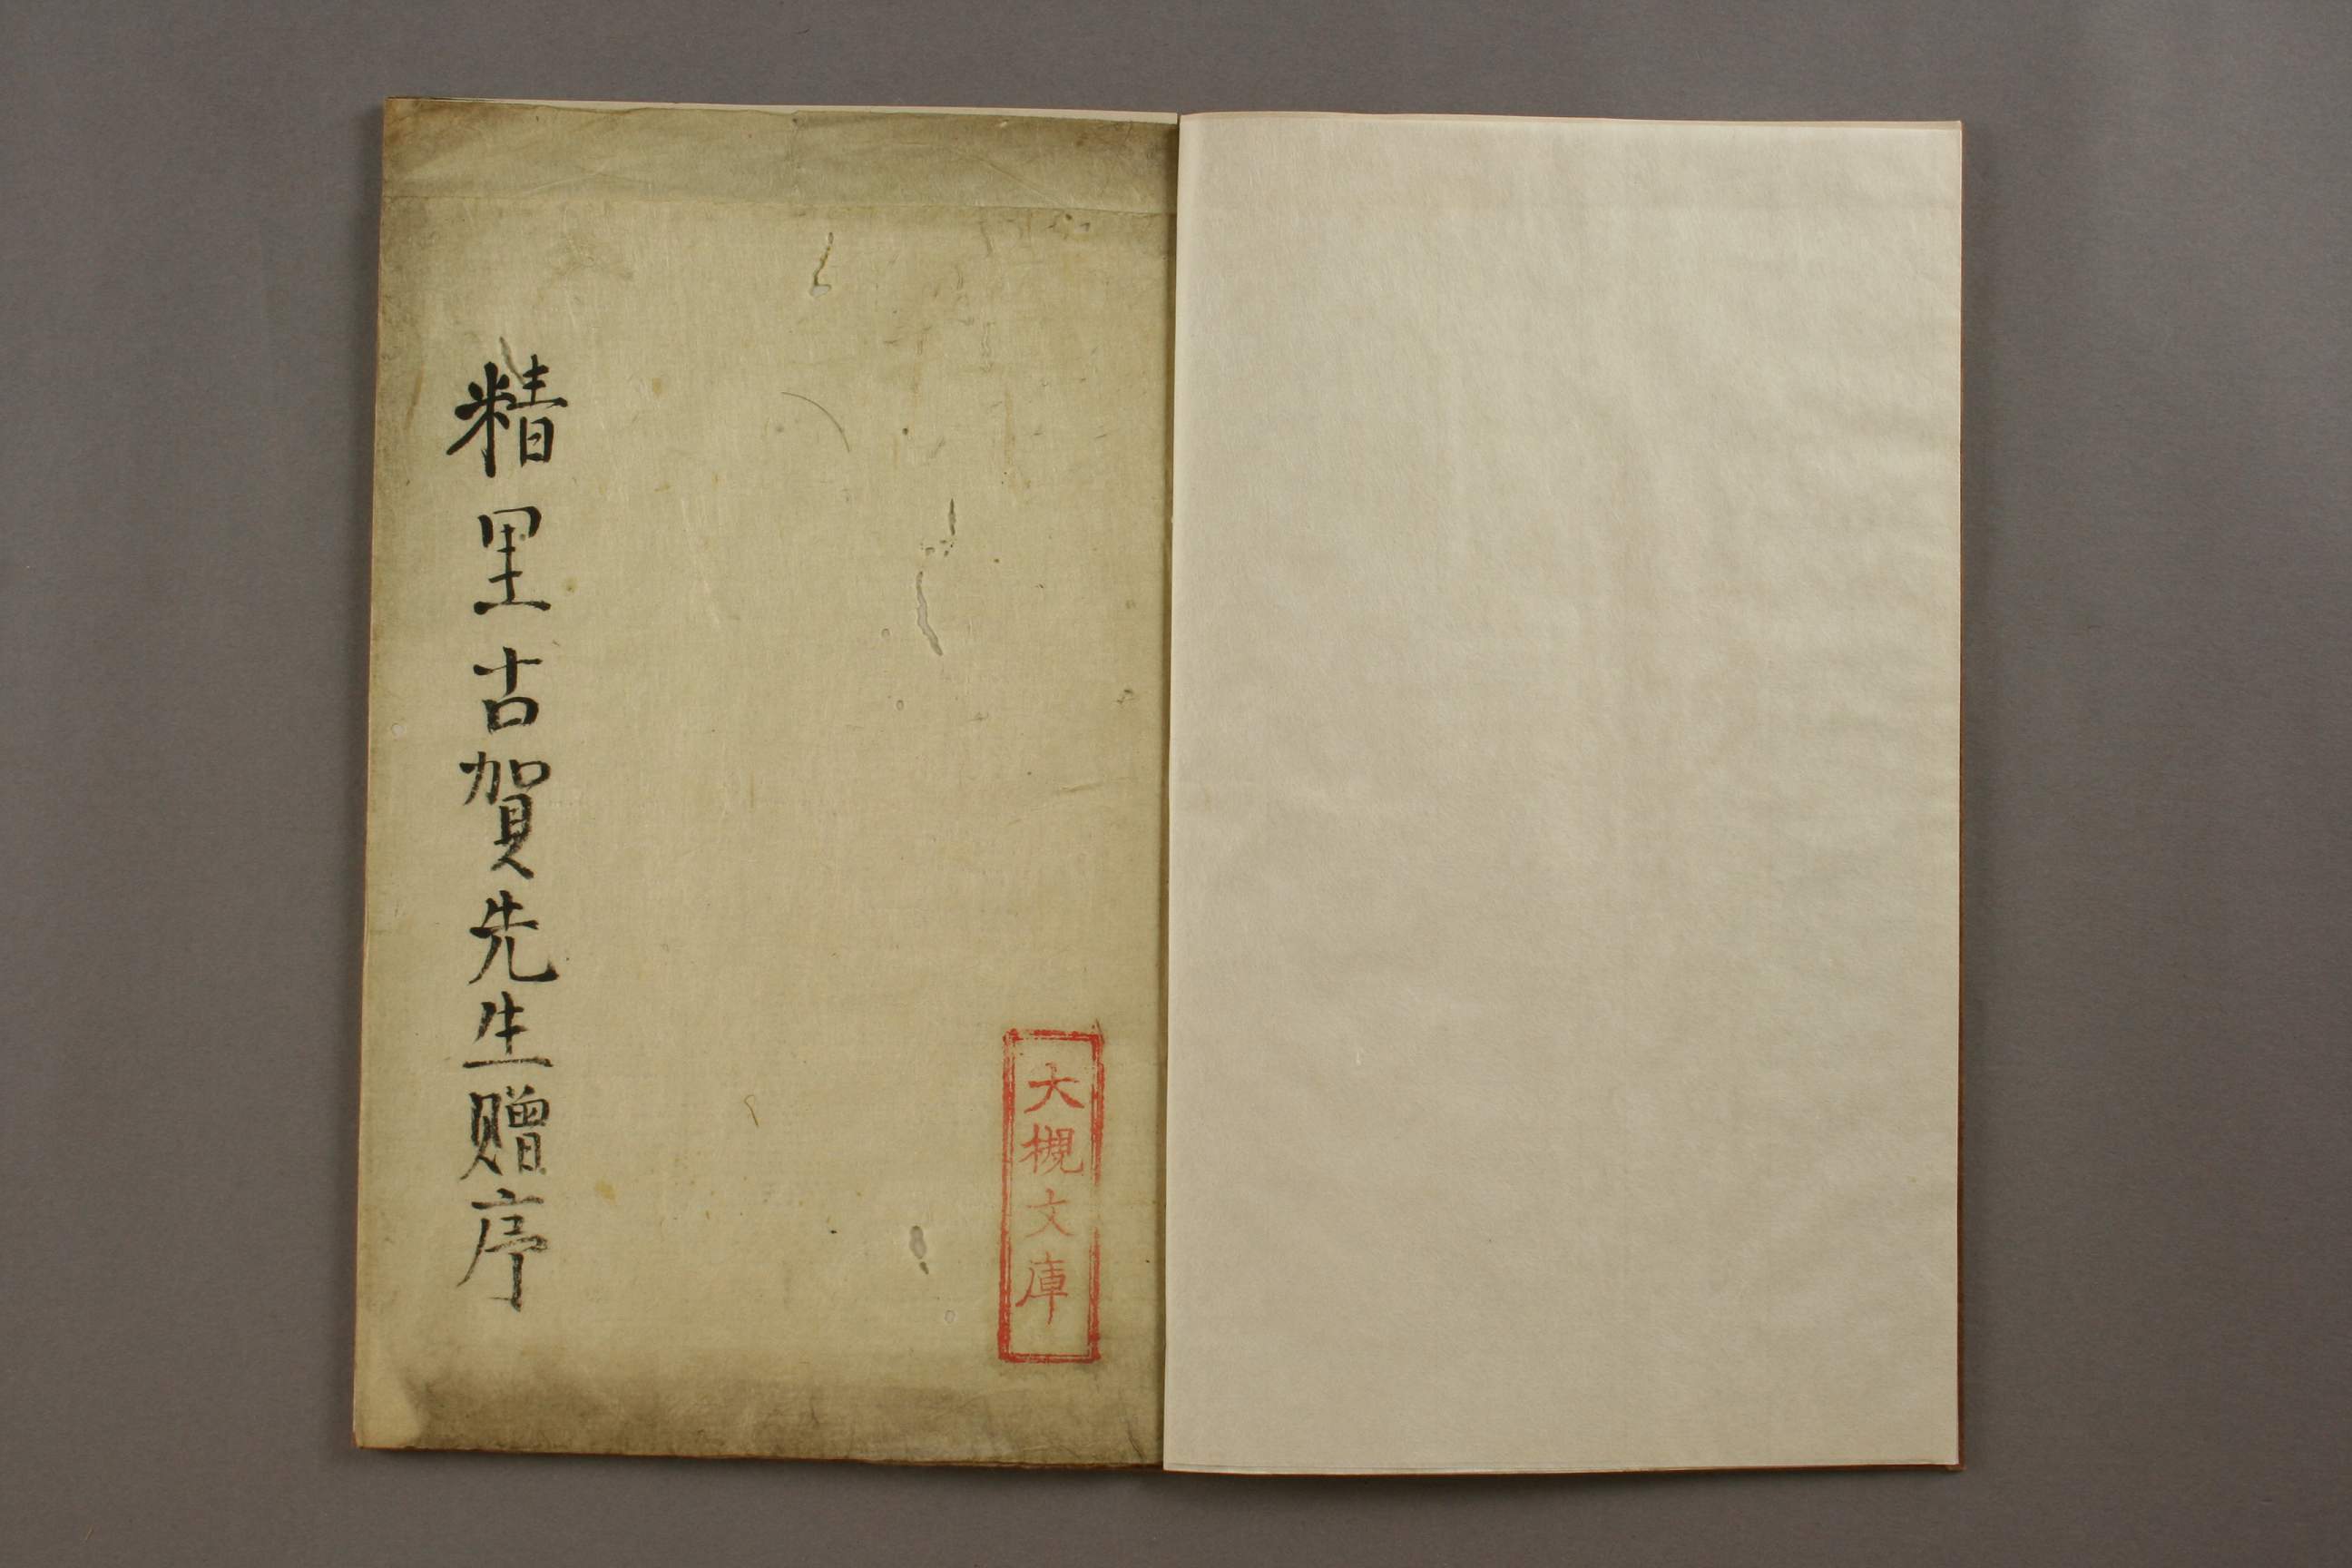 大槻文庫
精里古賀先生贈序